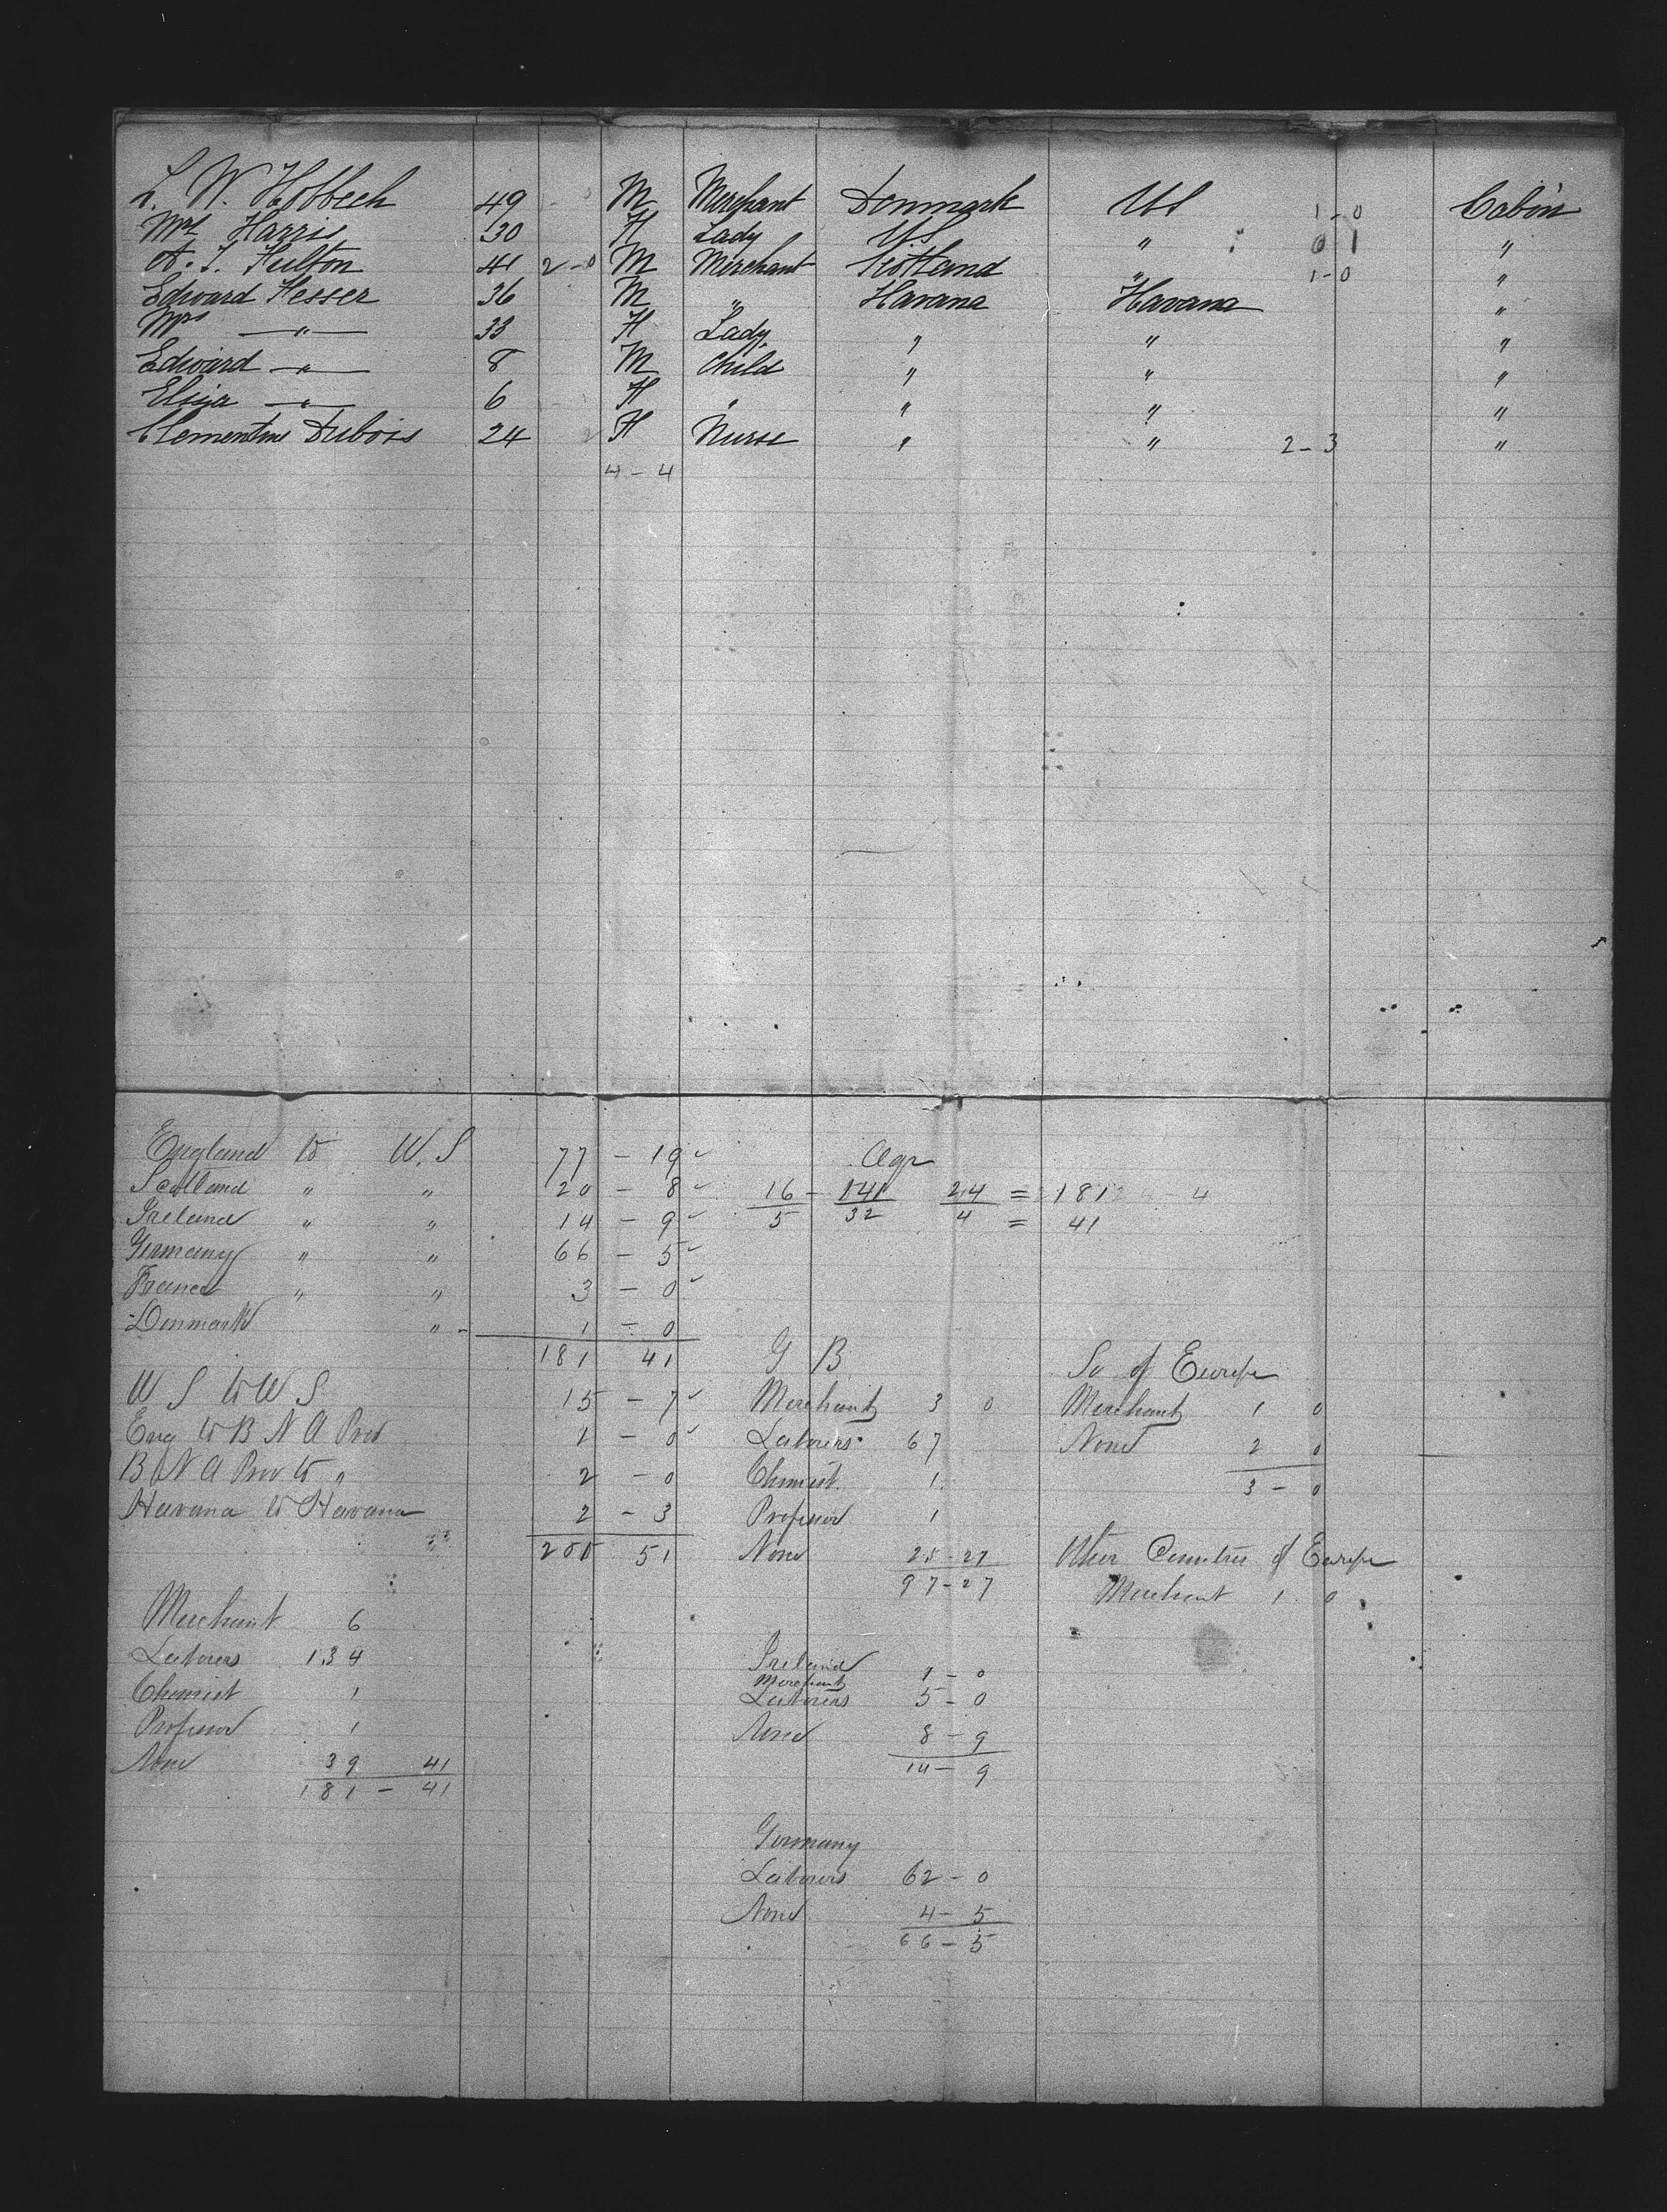 L. W. Holbech 49 M Merchant Denmark US 1-0 Cabin
Mrs Harris 30 F Lady US " 0 1 "
A. J. Fulton 41 2-0 M Merchant Scotland " 1-0 "
Edward Hesser 36 M " Havana Havana "
Mrs —"— 33 F Lady " " "
Edward —"— 8 M Child " " "
Eliza —"— 6 F " " " "
Clementine Dubois 24 F Nurse " " 2-3 "
4 - 4
England to U.S 77 - 19
Scotland " " 20 - 8
Ireland " " 14 - 9
Germany " " 66 - 5
France " " 3 - 0
Denmark " 1 - 0
181 41
U S to U S 15 - 7
Eng to B N A Prov 1 - 0
B N A Prov to " 2 - 0
Havana to Havana 2 - 3
51
Merchant 6
Laborers 134
Chemist 1
Professor 1
None 39 41
181 - 41
Age
16 - 141 24 = 181 4
5 32 4 = 41
G B
Merchant 3 0
Laborers 67
Chemist 1
Professor 1
None 25-27
97-27
Ireland
Merchant 1 - 0
Laborers 5 - 0
None 8 - 9
14 - 9
Germany
Laborers 62 - 0
None 4 - 5
66 - 5
So of Europe
Merchant 1 0
None 2 0
3 - 0
Other Countries of Europe
Merchant 1 0